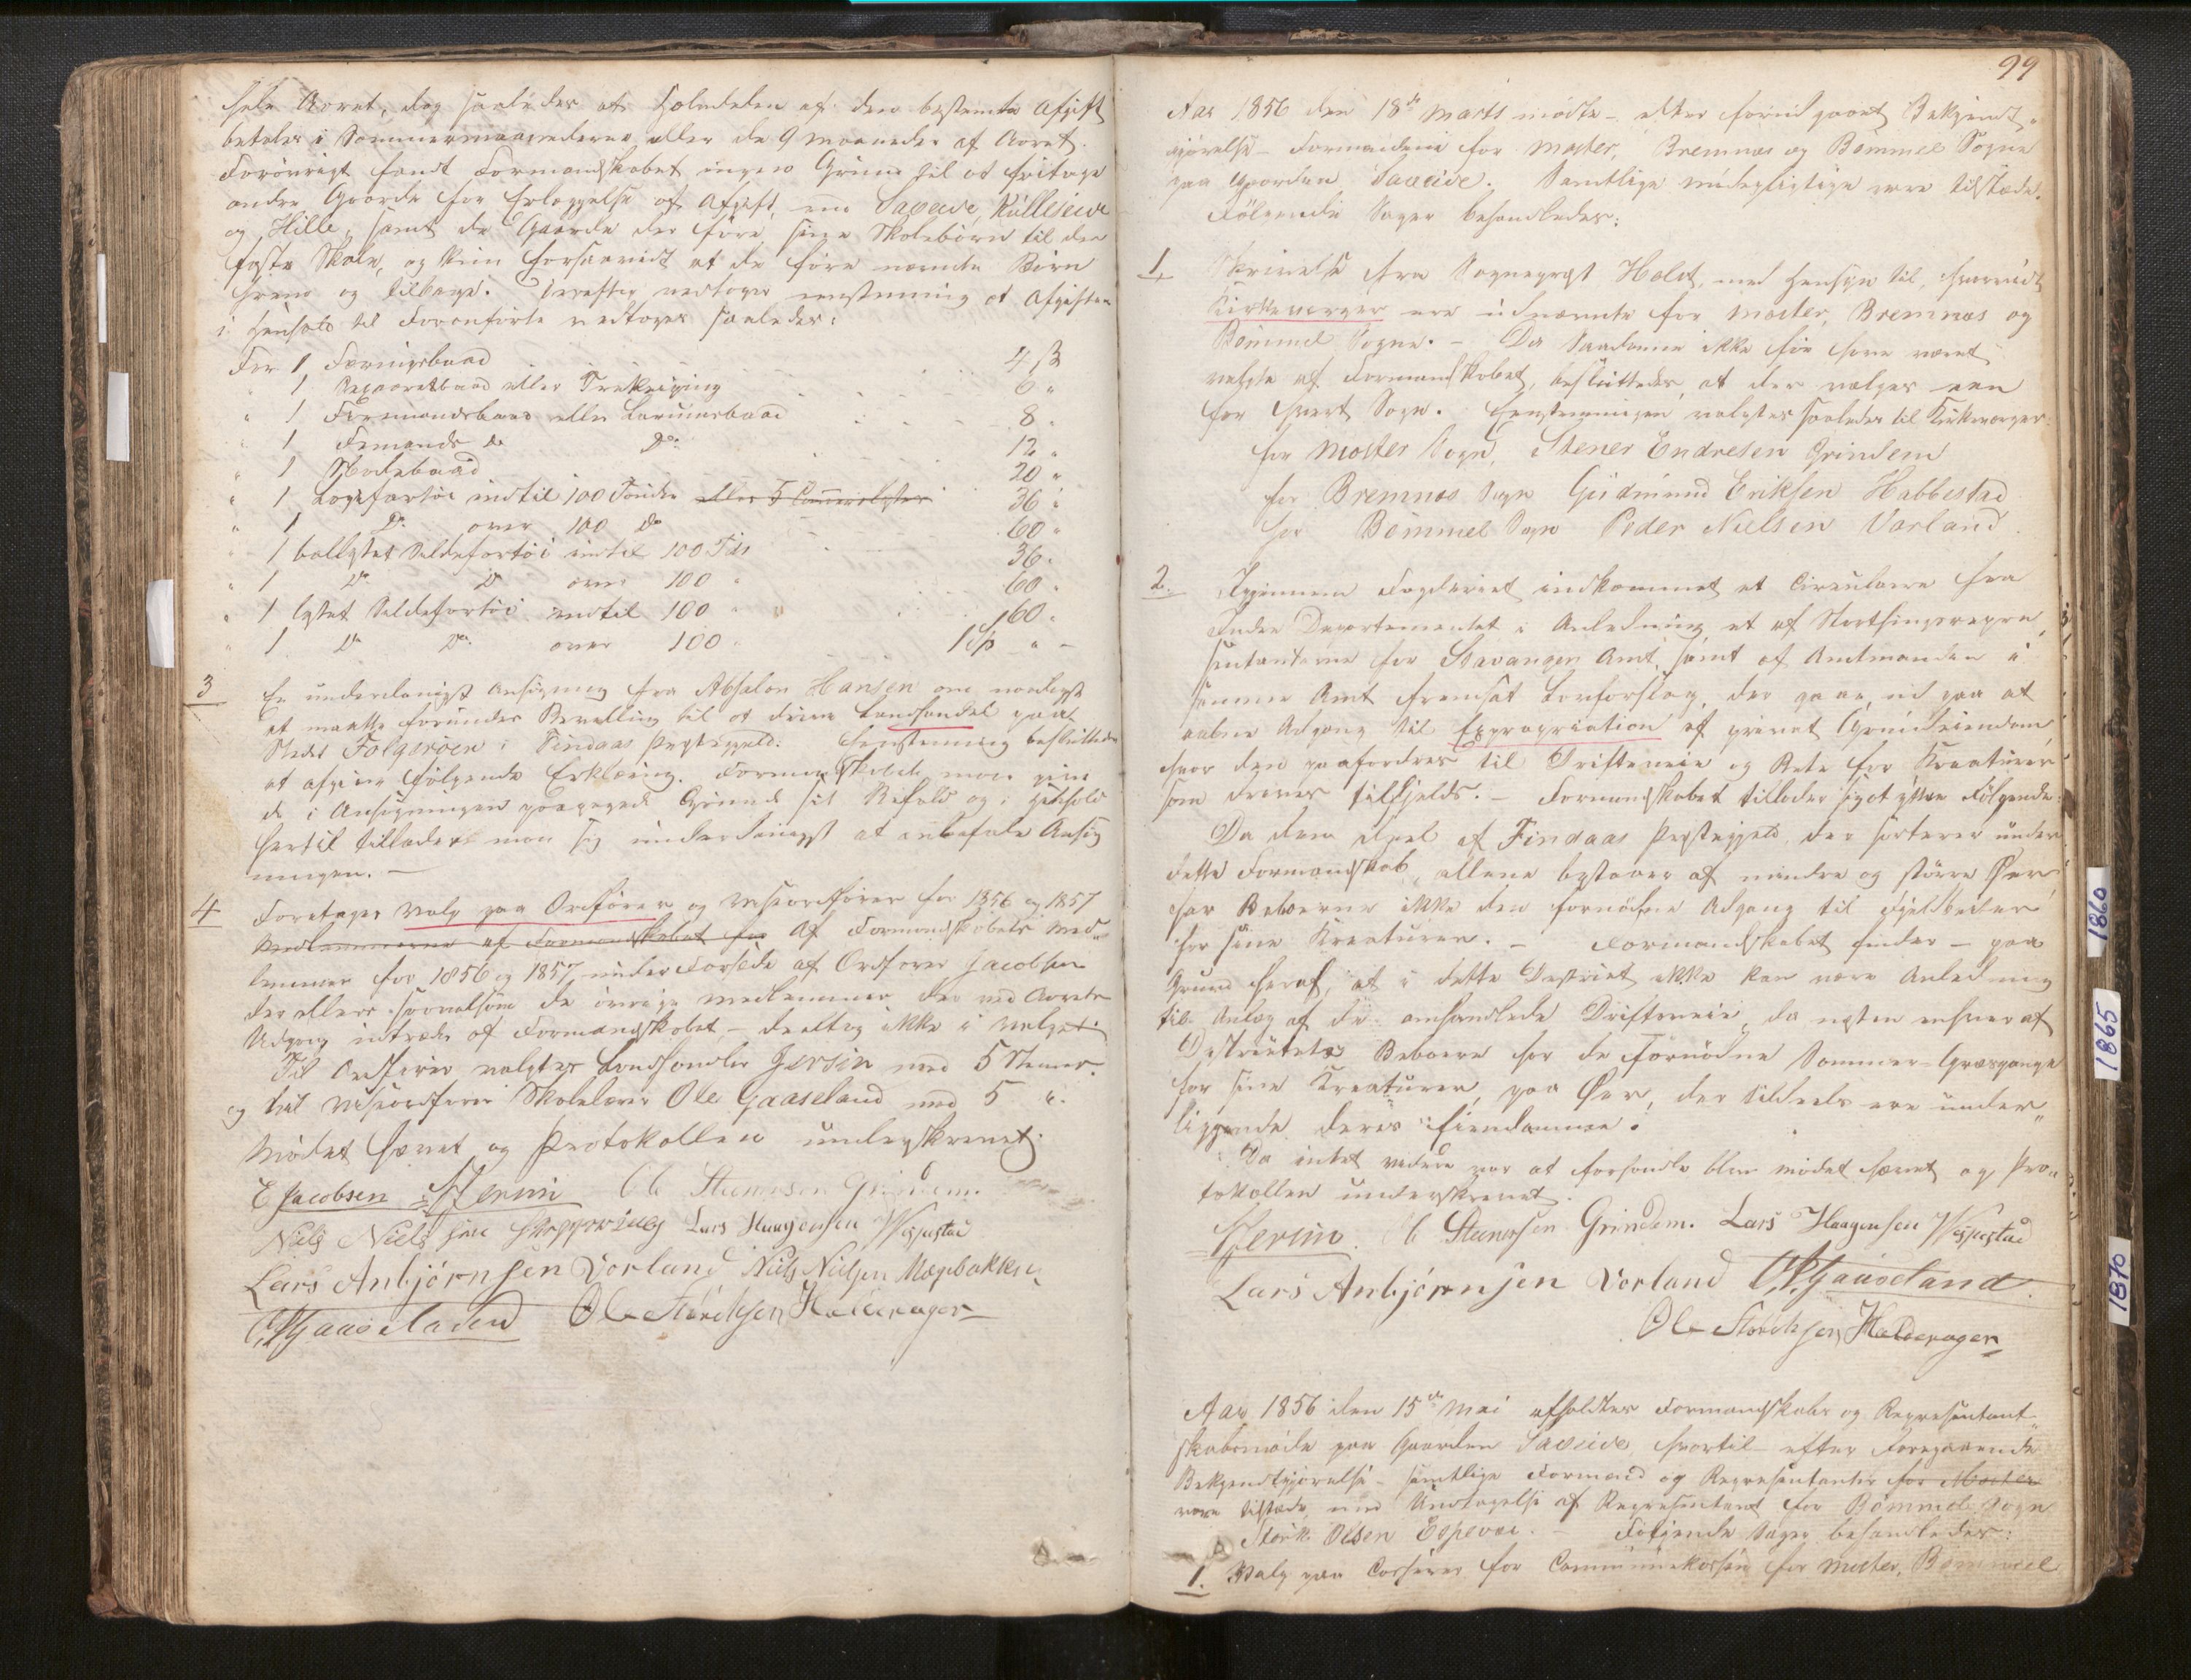 hele Aaret, dog saaledes at Halvdelen af den bestemte Afgift
betales i Sommermaanederne eller de 9 Maaneder af Aaret.
Forøvrigt fandt Formandskabet ingen Grund til at fritage
andre Gaarde for Erlæggelse af Afgift, end Saxeide, Kulleseide
og Hille, samt de Gaarde der føre sine Skolebørn til den
faste Skole, og kun forsaavidt at de føre nævnte Børn
frem og tilbage. Derefter vedtoges eenstemmig at Afgiften
i Henhold til Foranførte vedtoges saaledes:
For 1 Færingsbaad 4 ß
" 1 eller Trekeiping 6 "
" 1 Firemandsbaad eller 8 "
" 1 Femands do Do 12 "
" 1 Skudebaad 20 "
" 1 Lagefartøi indtil 100 Tønder eller 5 Commerselæster 36 "
" 1 Do over 100 do 60 "
" 1 ballastet Sildefartøi indtil 100 Tdr 36 "
" 1 Do Do over 100 " 60 "
" 1 lastet Sildefartøi indtil 100 " " 60 "
" 1 Do Do over 100 " 1 " -
3 En underdanigst Ansøgning fra Absalon Hansen om naadigst
at maatte forundes Bevilling til at drive Landhandel paa
Stedet Folgerøen i Findaas Præstegjeld. Eenstemmig besluttedes
at afgive følgende Erklæring. Formandskabet maa give
de i Ansøgningen paaegede Grunde sit Bifald og i Henhold
hertil tillader man sig underdanigst at anbefale Ansøg
ningen. —
4 Foretoges Valg paa Ordfører og Viseordfører for 1856 og 1857
Medlemmerne af Formandskabet for Af Formandskabets Med-
lemmer for 1856 og 1857 under Forsæde af Ordfører Jacobsen
der ellers saavelsom de øvrige Medlemmer der ved Aarets
Udgang udtræde af Formandskabet, — deeltog ikke i Valget.
Til Ordfører valgtes Landhandler Jersin med 5 Stemmer.
og til Viseordfører Skolelærer Ole Gaaseland med 5 "
Mødet hævet og Protokollen underskrevet.
E Jacobsen Jersin Ole Steenersen Grindem.
Niels Nielssen Lars Haagensen Wespestad
Lars Anbjörnsen Vorland Niels Nielsen Mægebakken
O. Gaaseland Ole Størcksen Hallerager
99
Aar 1856 den 18de Marts mødte — efter forudgaaet Bekjendt-
gjørelse — Formændene for Moster, Bremnæs og Bømmel Sogne
paa Gaarden Saxeide. Samtlige mødepligtige vare tilstæde.
Følgende Sager behandledes:
1 Skrivelse fra Sognepræst Holst, med Hensyn til, hvorvidt
Kirkeværger ere udnævnte for Moster, Bremnæs og
Bømmel Sogne. — Da Saadanne ikke før have været
valgte af Formandskabet, besluttedes, at der vælges een
for hvert Sogn. Eenstemmigen valgtes saaledes til Kirkeværger:
for Moster Sogn, Stener Endresen Grindem
for Bremnæs Sogn Gudmund Eriksen Habbestad
for Bømmel Sogn Peder Nielsen Vorland.
2. Igjennem Fogderiet indkommet et Circulære fra
Indre Departementet i Anledning et af Storthingsrepræ
sentanterne for Stavanger Amt, samt af Amtmanden i
samme Amt fremsat Lovforslag, der gaar ud paa at
aabne Adgang til Expropriation af privat Grundeiendom,
hvor den paafordres til Drifteveie og Rete for Kreaturer
som drives tilfjelds. — Formandskabet tillader sig at yttre Følgende:
Da den Deel af Findaas Præstegjeld, der sorterer under
dette Formandskab, allene bestaaer af mindre og større Øer,
har Beboerne ikke den fornødne Adgang til Fjeldbeiter
for sine Kreaturer. — Formandskabet finder — paa
Grund heraf, at i dette District ikke kan være Anledning
til Anlæg af de omhandlede Drifteveie, da næsten enhver af
Districtets Beboere har de fornødne Sommer-Græsgange
for sine Kreaturer, paa Øer, der tildeels ere under-
liggende deres Eiendomme.
Da intet videre var at forhandle blev mødet hævet og Pro-
tokollen underskrevet.
Jersin. O Steenersen Grindem. Lars Haagensen Wespestad
Lars Anbjörnsen Vorland O. Gaaseland.
Ole Størcksen Hallerager
Aar 1856 den 15de Mai afholdtes Formandskabs og Repræsentant-
skabsmøde paa Gaarden Saxeide, hvortil efter foregaaende
Bekjendtgjørelse samtlige Formænd og Repræsentanter for Moster
vare tilstæde, med Undtagelse af Repræsentant for Bømmel Sogn
Størk Olsen Espevær. — Følgende Sager behandledes:
1. Valg paa Casserer for Communekassen for Moster, Bømmel
1860
1865
1870